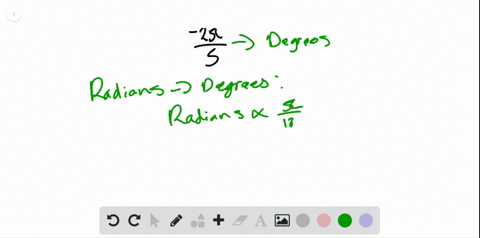 -2π/5 → Degrees
Radians → Degrees:
Radians × π/18